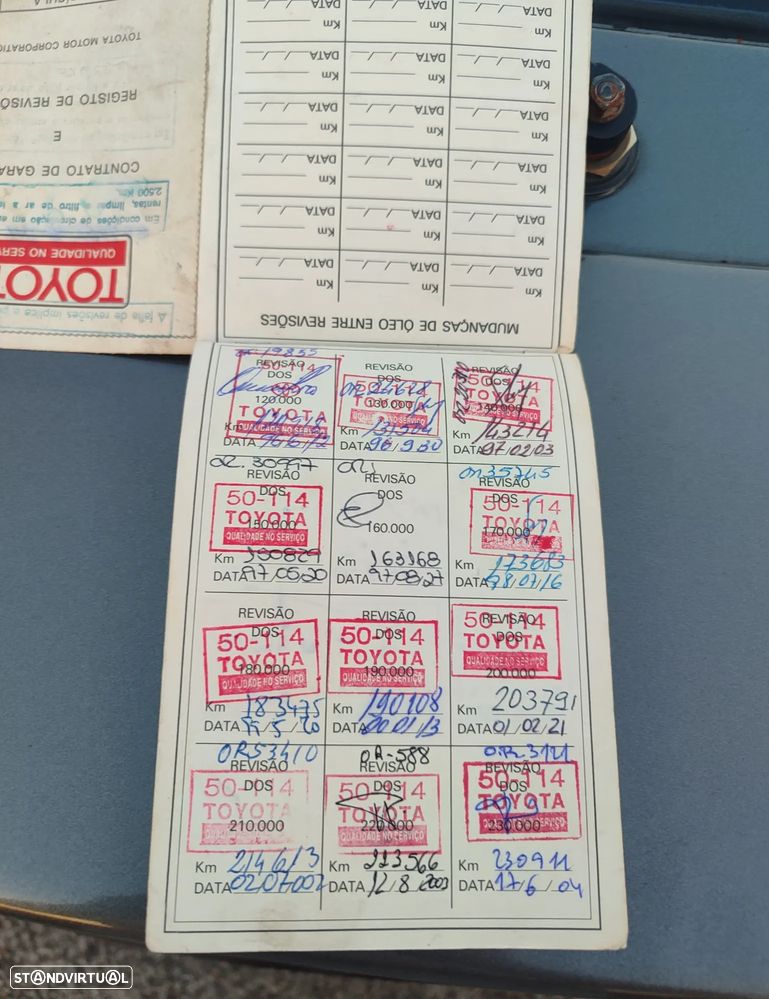 TOYOTA MOTOR CORPORATIO
REGISTO DE REVISÕ
E
CONTRATO DE GARA
Em condições de
2.500 Km
QUALIDADE NO SERV
TOYO
A falta de revisões implica a
MUDANÇAS DE ÓLEO ENTRE REVISÕES
Km
DATA
Km
DATA
Km
DATA
Km
DATA
Km
DATA
Km
DATA
Km
DATA
Km
DATA
Km
DATA
Km
DATA
Km
DATA
Km
DATA
Km
DATA
Km
DATA
Km
DATA
Km
DATA
Km
DATA
Km
DATA
19855
REVISÃO
DOS
120.000
50-114
TOYOTA
QUALIDADE NO SERVIÇO
Km
DATA 96/6/12
REVISÃO
DOS
130.000
TOYOTA
Km
DATA 96/9/30
REVISÃO
DOS
140.000
TOYOTA
Km 143214
DATA 97/02/03
OR. 30997
REVISÃO
DOS
150.000
50-114
TOYOTA
QUALIDADE NO SERVIÇO
Km 150829
DATA 97/05/20
OR
REVISÃO
DOS
160.000
Km 163168
DATA 97/08/27
OR35745
REVISÃO
DOS
170.000
50-114
TOYOTA
QUALIDADE NO SERVIÇO
Km 173683
DATA 98/07/16
REVISÃO
DOS
180.000
50-114
TOYOTA
QUALIDADE NO SERVIÇO
Km 183475
DATA
REVISÃO
DOS
190.000
50-114
TOYOTA
QUALIDADE NO SERVIÇO
Km 190108
DATA 00/01/13
REVISÃO
DOS
200.000
50-114
TOYOTA
QUALIDADE NO SERVIÇO
Km 203791
DATA 01/02/21
OR53410
REVISÃO
DOS
210.000
50-114
TOYOTA
QUALIDADE NO SERVIÇO
Km 214613
DATA 02/07/002
OR-588
REVISÃO
DOS
220.000
50-114
TOYOTA
QUALIDADE NO SERVIÇO
Km 223566
DATA 12/8/2003
O.R 3121
REVISÃO
DOS
230.000
50-114
TOYOTA
QUALIDADE NO SERVIÇO
Km 230911
DATA 17/6/04
STANDVIRTUAL